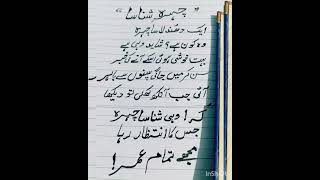 "چہرہ شناسا"
ایک دھندلا سا چہرہ
وہ کون ہے؟ شاید وہی ہے
بہت خوشی ہوئی اسکے آنے کی خبر
سن کر میں جاگی سپنوں سے باہر
آئی جب آنکھ کھلی تو دیکھا
کہ! وہی شناسا چہرہ
جس کا انتظار رہا
مجھے تمام عمر!
InSho